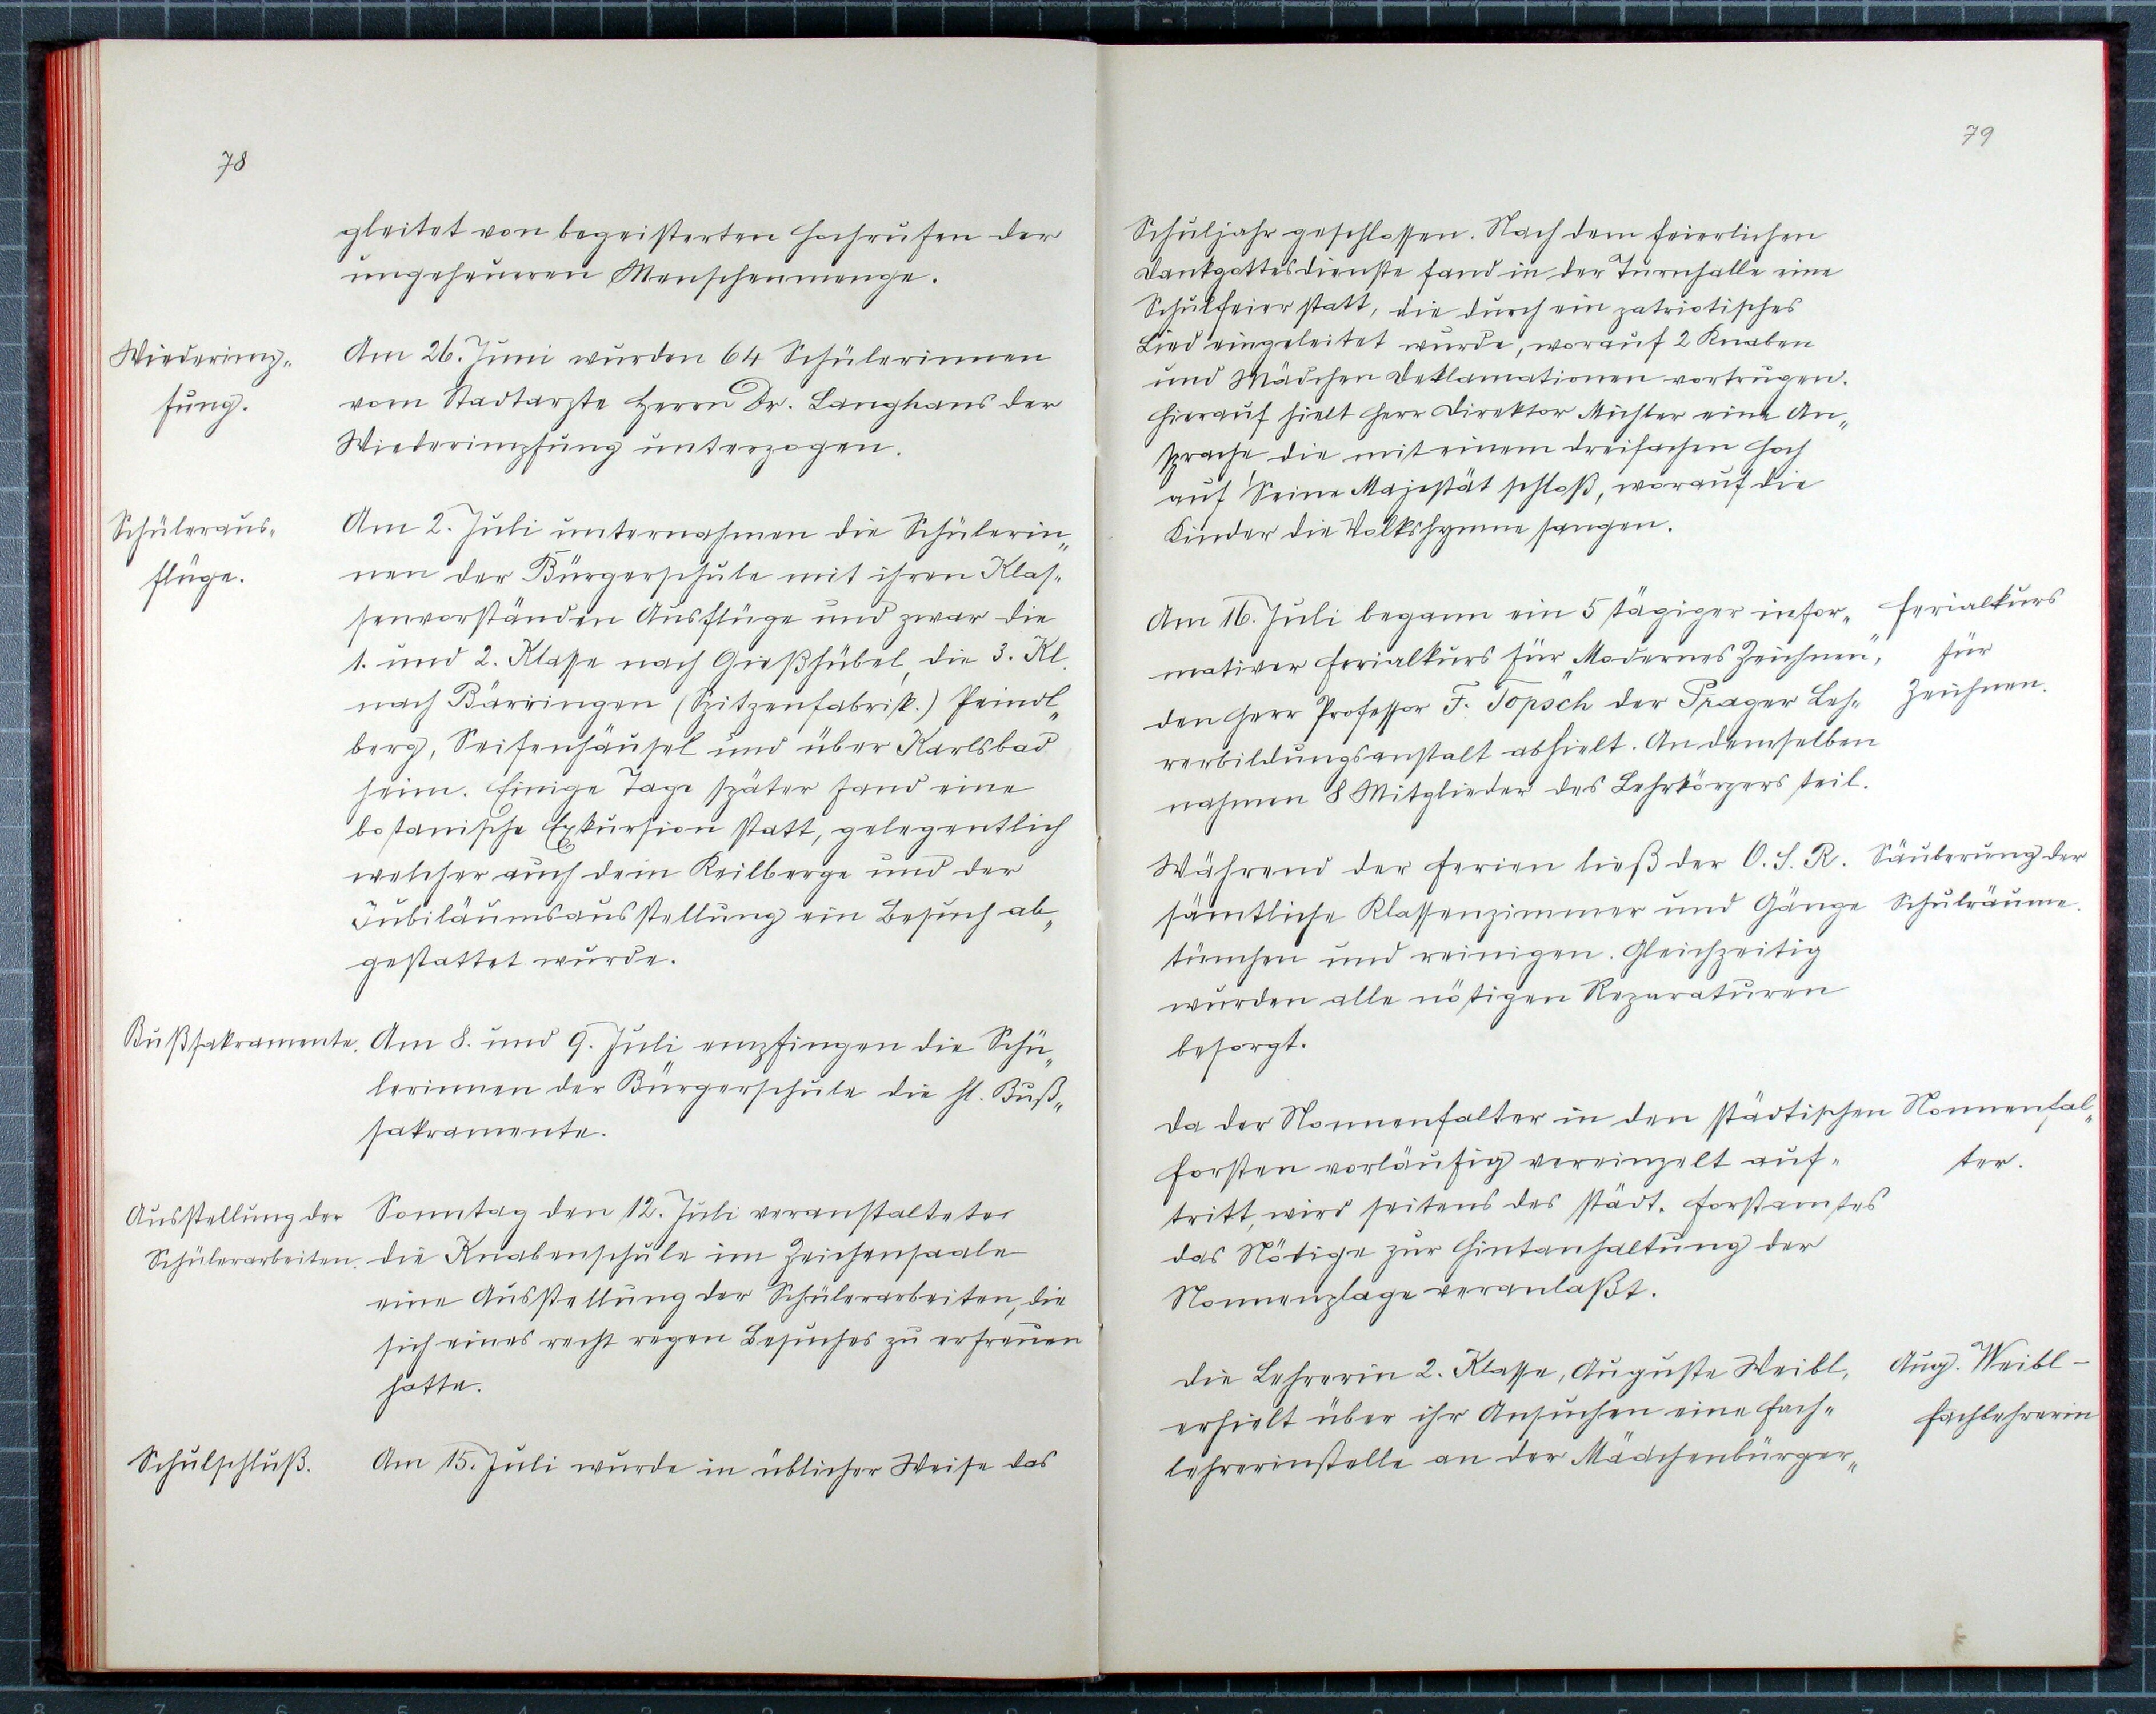 78
gleitet von begeisterten Hochrufen der
ungeheueren Menschenmenge.
Wiederimp-
fung.
Am 26. Juni wurden 64 Schülerinnen
vom Stadtarzte Herrn Dr. Langhans der
Wiederimpfung unterzogen.
Schüleraus-
flüge.
Am 2. Juli unternahmen die Schülerin-
nen der Bürgerschule mit ihren Klas-
senvorständen Ausflüge und zwar die
1. und 2. Klasse nach Gießhübel, die 3. Kl.
nach Bärringen (Spitzenfabrik.) Peindl-
berg, Seifenhäusel und über Karlsbad
heim. Einige Tage später fand eine
botanische Exkursion statt, gelegentlich
welcher auch dem Keilberge und der
Jubiläumsausstellung ein Besuch ab-
gestattet wurde.
Bußsakramente.
Am 8. und 9. Juli empfingen die Schü-
lerinnen der Bürgerschule die hl. Buß-
sakramente.
Ausstellung der
Schülerarbeiten.
Sonntag den 12. Juli veranstaltete
die Knabenschule im Zeichensaale
eine Ausstellung der Schülerarbeiten, die
sich eines recht regen Besuches zu erfreuen
hatte.
Schulschluß.
Am 15. Juli wurde in üblicher Weise das
79
Schuljahr geschlossen. Nach dem feierlichen
Dankgottesdienste fand in der Turnhalle eine
Schulfeier statt, die durch ein patriotisches
Lied eingeleitet wurde, worauf 2 Knaben
und Mädchen Deklamationen vortrugen.
Hierauf hielt Herr Direktor Michler eine An-
sprache, die mit einem dreifachen Hoch
auf Seine Majestät schloß, worauf die
Kinder die Volkshymne sangen.
Am 16. Juli begann ein 5 tägiger infor-
mativer Ferialkurs für „Modernes Zeichnen",
den Herr Professor F. Topsch der Prager Leh-
rerbildungsanstalt abhielt. An demselben
nahmen 8 Mitglieder des Lehrkörpers teil.
Ferialkurs
für
Zeichnen.
Während der Ferien ließ der O. S. R.
sämtliche Klassenzimmer und Gänge
tünchen und reinigen. Gleichzeitig
wurden alle nötigen Reparaturen
besorgt.
Säuberung der
Schulräume.
Da der Nonnenfalter in den städtischen
Forsten vorläufig vereinzelt auf-
tritt, wird seitens des städt. Forstamtes
das Nötige zur Hintanhaltung der
Nonnenplage veranlaßt.
Nonnenfal-
ter.
Die Lehrerin 2. Klasse, Auguste Weibl,
erhielt über ihr Ansuchen eine Fach-
lehrerinstelle an der Mädchenbürger-
Aug. Weibl –
Fachlehrerin